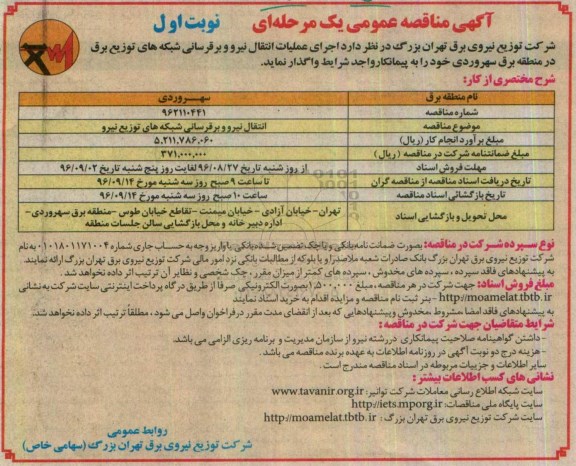 آگهی مناقصه عمومی یک مرحله‌ای نوبت اول
شرکت توزیع نیروی برق تهران بزرگ در نظر دارد اجرای عملیات انتقال نیرو و برقرسانی شبکه های توزیع برق
در منطقه برق سهروردی خود را به پیمانکار واجد شرایط واگذار نماید.
شرح مختصری از کار:
نام منطقه برق سهروردی
شماره مناقصه ۹۶۲۱۱۰۴۴۱
موضوع مناقصه انتقال نیرو و برقرسانی شبکه های توزیع نیرو
مبلغ برآورد انجام کار (ریال) ۵،۲۱۱،۷۸۶،۰۶۰
مبلغ ضمانتنامه شرکت در مناقصه (ریال) ۳۷۱،۰۰۰،۰۰۰
مهلت فروش اسناد از روز شنبه تاریخ ۹۶/۰۸/۲۷ لغایت روز پنج شنبه تاریخ ۹۶/۰۹/۰۲
تاریخ دریافت اسناد مناقصه از مناقصه گران تا ساعت ۹ صبح روز سه شنبه مورخ ۹۶/۰۹/۱۴
تاریخ بازگشائی اسناد مناقصه ساعت ۱۰ صبح روز سه شنبه مورخ ۹۶/۰۹/۱۴
محل تحویل و بازگشایی اسناد تهران- خیابان آزادی - خیابان میمنت - تقاطع خیابان طوس - منطقه برق سهروردی - اداره دبیر خانه و محل بازگشایی سالن جلسات منطقه
نوع سپرده شرکت در مناقصه: بصورت ضمانت نامه بانکی و یا چک تضمین شده بانکی یا واریز وجه به حساب جاری شماره ۰۱۰۱۸۰۱۱۷۱۰۰۴ به نام
شرکت توزیع نیروی برق تهران بزرگ بانک صادرات شعبه ملاصدرا و یا بلوکه از مطالبات بانکی نزد امور مالی شرکت توزیع نیروی برق تهران بزرگ ارائه نمایند.
به پیشنهادهای فاقد سپرده ، سپرده های مخدوش ، سپرده های کمتر از میزان مقرر ، چک شخصی و نظایر آن ترتیب اثر داده نخواهد شد.
مبلغ فروش اسناد: جهت شرکت در هر مناقصه، مبلغ ۱،۵۰۰،۰۰۰ (بصورت الکترونیکی صرفا از طریق درگاه پرداخت اینترنتی سایت شرکت به نشانی
http://moamelat.tbtb.ir - بنر ثبت نام مناقصه و مزایده اقدام به خرید اسناد نمایند
به پیشنهادهای فاقد امضا، مشروط ،مخدوش و پیشنهادهایی که بعد از انقضای مدت مقرر در فراخوان واصل می شود ، مطلقاً ترتیب اثر داده نخواهد شد.
شرایط متقاضیان جهت شرکت در مناقصه :
- داشتن گواهینامه صلاحیت پیمانکاری در رشته نیرو از سازمان مدیریت و برنامه ریزی الزامی می باشد.
- هزینه درج دو نوبت آگهی در روزنامه اطلاعات به عهده برنده مناقصه می باشد.
سایر اطلاعات و جزییات مربوطه در اسناد مناقصه مندرج است.
نشانی های کسب اطلاعات بیشتر :
سایت شبکه اطلاع رسانی معاملات شرکت توانیر: www.tavanir.org.ir
سایت پایگاه ملی مناقصات: http://iets.mporg.ir
سایت شرکت توزیع نیروی برق تهران بزرگ : http://moamelat.tbtb.ir
روابط عمومی
شرکت توزیع نیروی برق تهران بزرگ (سهامی خاص)